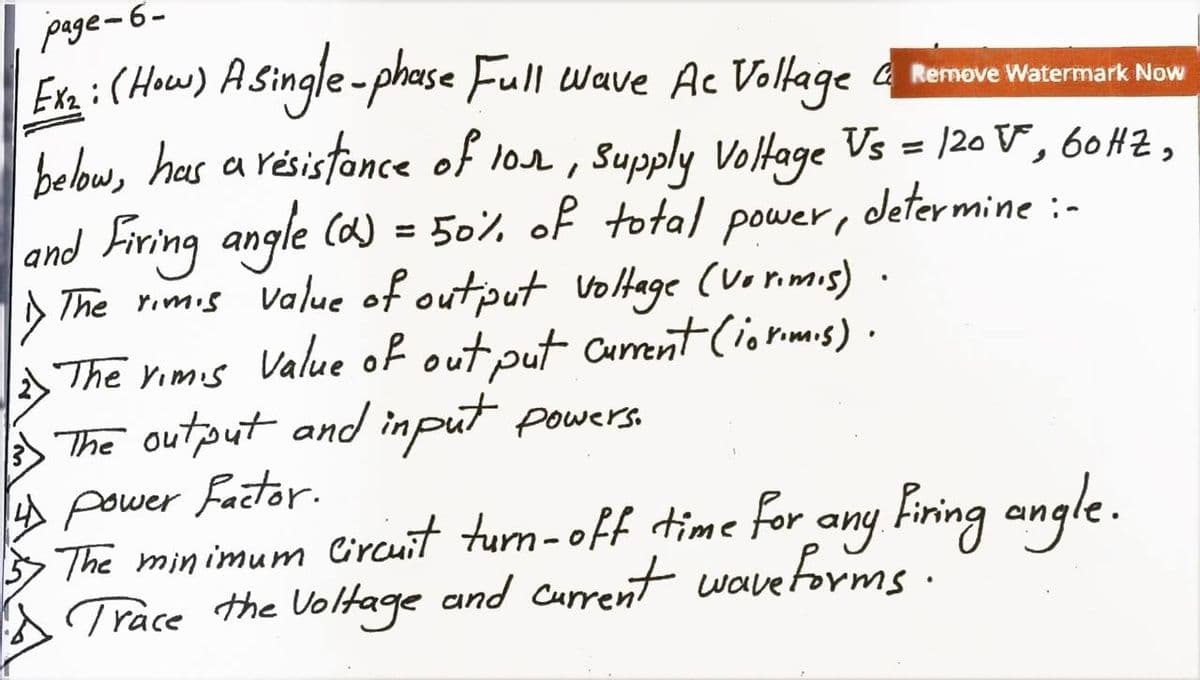 page-6-
Ex2: (How) A Single-phase Full Wave Ac Voltage C Remove Watermark Now
below, has a résistance of 10Ω, Supply Voltage Vs = 120 V, 60HZ,
and Firing angle (α) = 50% of total power, determine :-
1) The r.m.s Value of output voltage (Vo r.m.s).
2) The r.m.s Value of output Current (io r.m.s).
3) The output and input powers.
4) power Factor.
5) The minimum Circuit turn-off time For any Firing angle.
6) Trace the Voltage and Current waveforms.